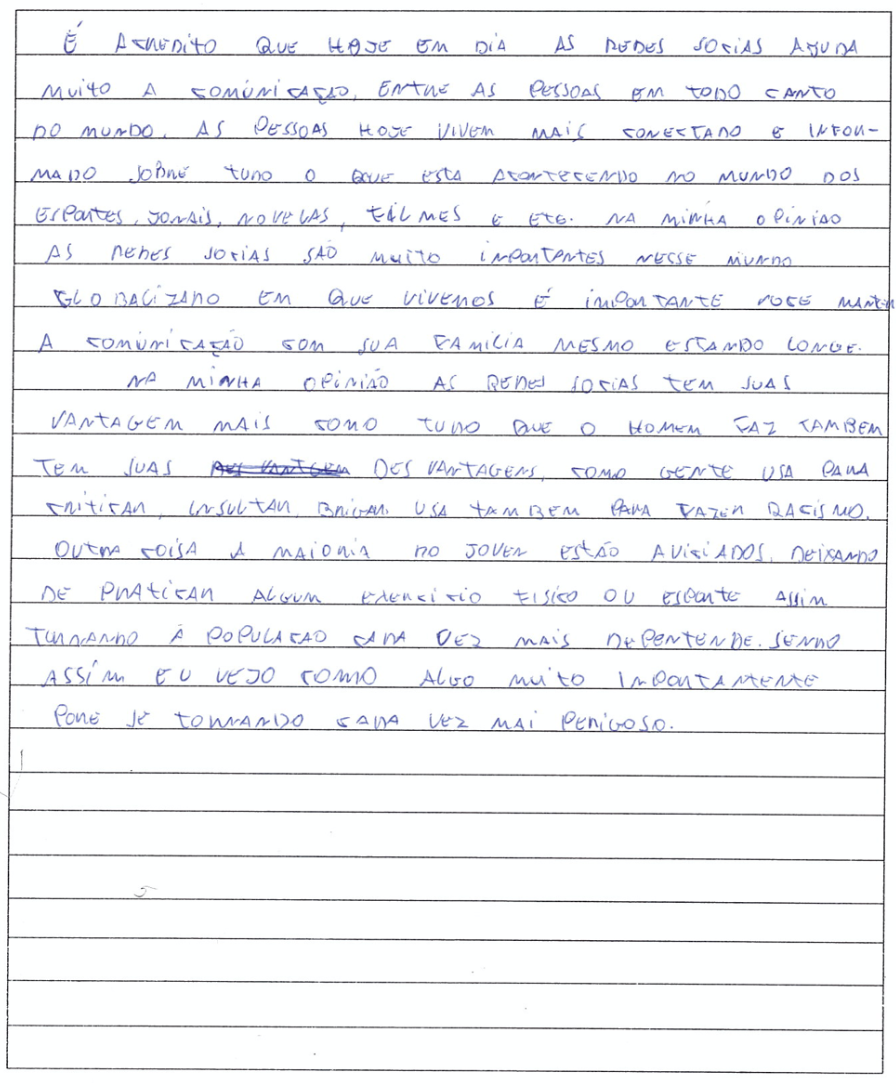 É ACREDITO QUE HOJE EM DIA AS REDES SOCIAS AJUDA
MUITO A COMÚNICAÇÃO, ENTRE AS PESSOAS EM TODO CANTO
DO MUNDO. AS PESSOAS HOJE VIVEM MAIS CONECTADO E INFOR-
MADO SOBRE TUDO O QUE ESTA ACONTECENDO NO MUNDO DOS
ESPORTES, JORNAIS, NOVELAS, FILMES E ETC. NA MINHA OPINIÃO
AS REDES SOCIAS SÃO MUITO INPORTANTES NESSE MUNDO
GLOBALIZADO EM QUE VIVEMOS É IMPORTANTE VOCE MANTER
A COMÚNICAÇÃO COM SUA FAMILIA MESMO ESTANDO LONGE.
NA MINHA OPINIÃO AS REDES SOCIAS TEM SUAS
VANTAGEM MAIS COMO TUDO QUE O HOMEM FAZ TAMBEM
TEM SUAS DESVANTAGENS, COMO GENTE USA PARA
CRITICAR, INSULTAR, BRIGAR. USA TAMBEM PARA FAZER RACISMO.
OUTRA COISA A MAIORIA DO JOVEN ESTÃO AVICIADOS, DEIXANDO
DE PRATICAR ALGUM EXERCICIO FISICO OU ESPORTE ASSIM
TORNANDO Á POPULACAO CADA VEZ MAIS DEPENTENDE. SENDO
ASSÍM EU VEJO COMO ALGO MUITO IMPORTAMENTE
PORE SE TORNANDO CADA VEZ MAI PERIGOSO.